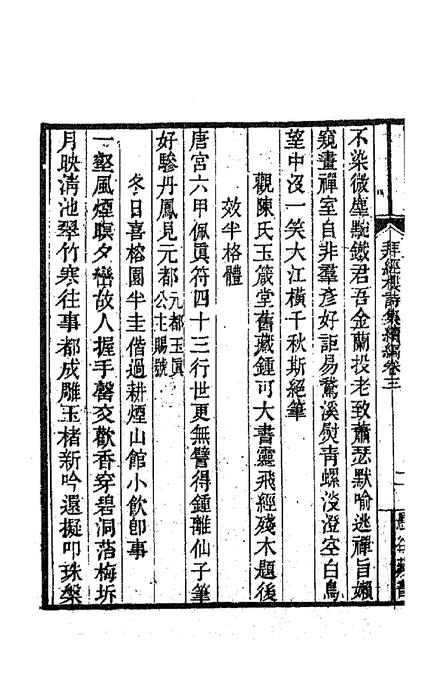 拜經樓詩集續編卷三
二
不染微塵駞鐵君吾金蘭投老致蕭瑟默喻逃禪旨嬾
窺畫禪室自非羣彥好詎易驚溪熨靑螺淡澄空白鳥
望中沒一笑大江橫千秋斯絕筆
觀陳氏玉箴堂舊藏鍾可大書靈飛經殘本題後
效半格體
唐宮六甲佩眞符四十三行世更無譬得鍾離仙子筆
好驂丹鳳見元都元都玉眞公主賜號
冬日喜榕園半圭偕過耕煙山館小飮卽事
一壑風煙暝夕巒故人握手罄交歡香穿碧洞落梅坼
月映淸池翠竹寒往事都成雕玉楮新吟還擬叩珠槃